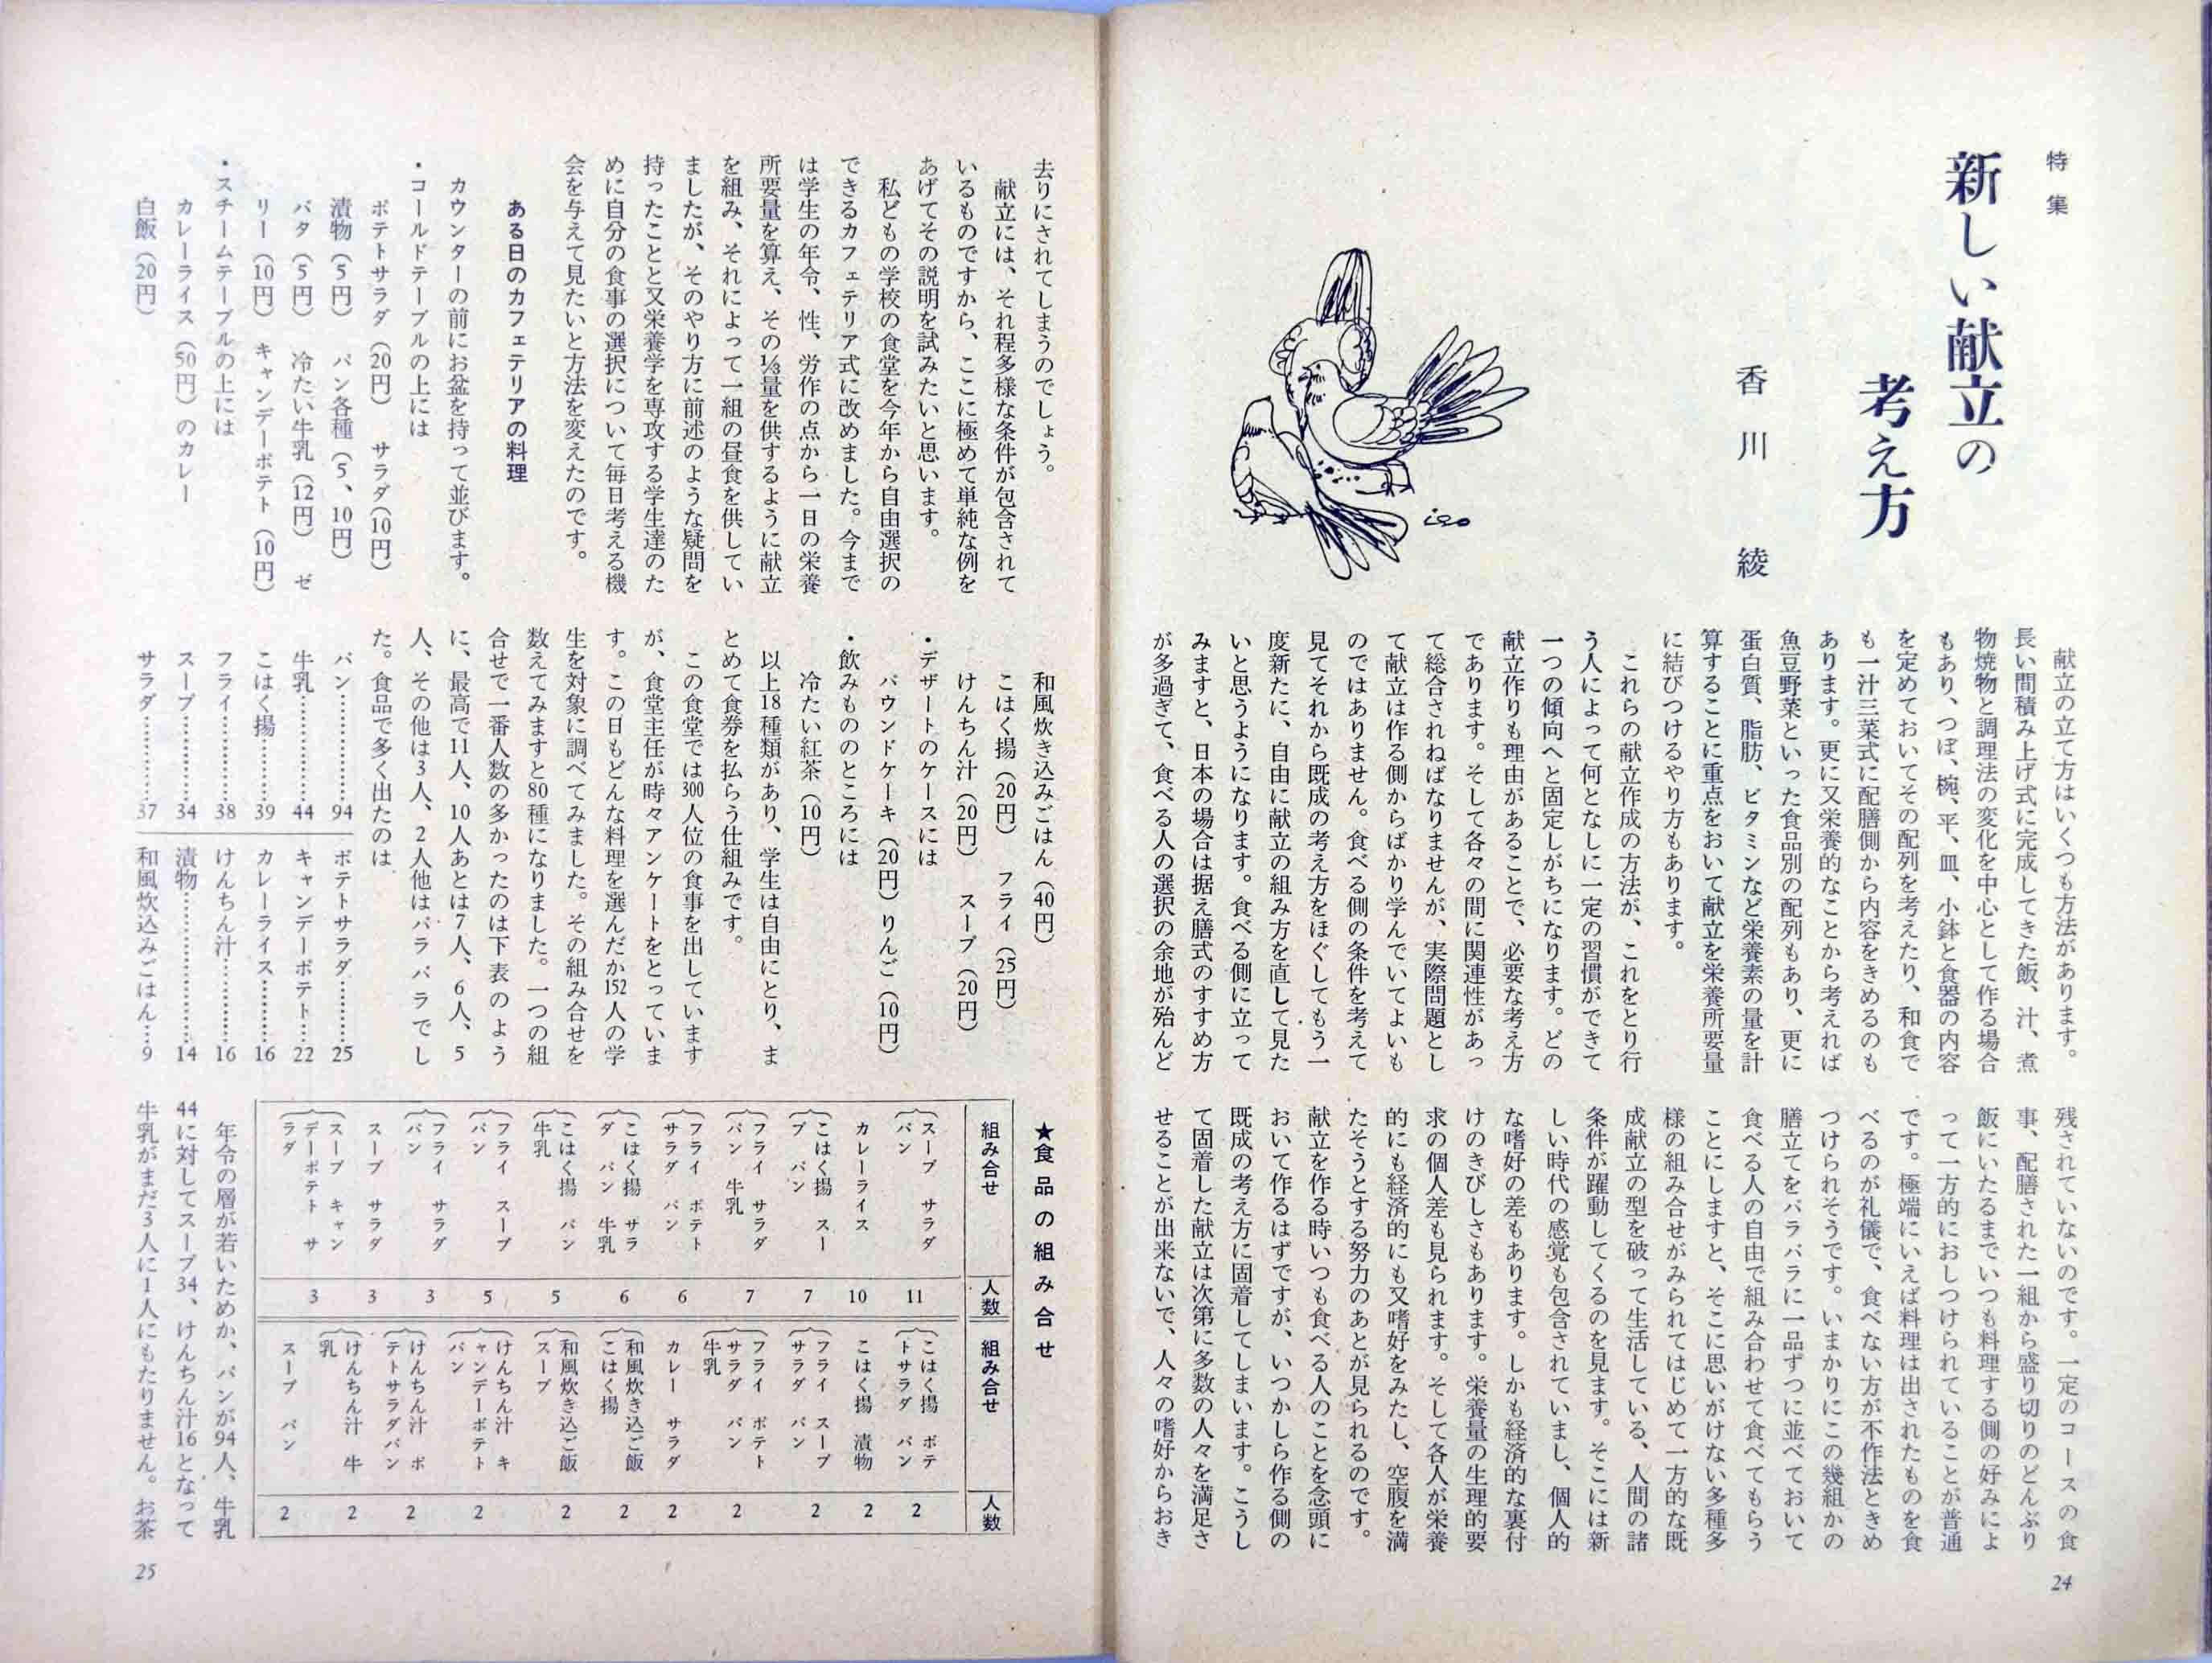 特集
新しい献立の
考え方
香川　綾
iso
献立の立て方はいくつも方法があります。
長い間積み上げ式に完成してきた飯、汁、煮
物焼物と調理法の変化を中心として作る場合
もあり、つぼ、椀、平、皿、小鉢と食器の内容
を定めておいてその配列を考えたり、和食で
も一汁三菜式に配膳側から内容をきめるのも
あります。更に又栄養的なことから考えれば
魚豆野菜といった食品別の配列もあり、更に
蛋白質、脂肪、ビタミンなど栄養素の量を計
算することに重点をおいて献立を栄養所要量
に結びつけるやり方もあります。
これらの献立作成の方法が、これをとり行
う人によって何となしに一定の習慣ができて
一つの傾向へと固定しがちになります。どの
献立作りも理由があることで、必要な考え方
であります。そして各々の間に関連性があっ
て総合されねばなりませんが、実際問題とし
て献立は作る側からばかり学んでいてよいも
のではありません。食べる側の条件を考えて
見てそれから既成の考え方をほぐしてもう一
度新たに、自由に献立の組み方を直して見た
いと思うようになります。食べる側に立って
みますと、日本の場合は据え膳式のすすめ方
が多過ぎて、食べる人の選択の余地が殆んど
残されていないのです。一定のコースの食
事、配膳された一組から盛り切りのどんぶり
飯にいたるまでいつも料理する側の好みによ
って一方的におしつけられていることが普通
です。極端にいえば料理は出されたものを食
べるのが礼儀で、食べない方が不作法ときめ
つけられそうです。いまかりにこの幾組かの
膳立てをバラバラに一品ずつに並べておいて
食べる人の自由で組み合わせて食べてもらう
ことにしますと、そこに思いがけない多種多
様の組み合せがみられてはじめて一方的な既
成献立の型を破って生活している、人間の諸
条件が躍動してくるのを見ます。そこには新
しい時代の感覚も包含されていまし、個人的
な嗜好の差もあります。しかも経済的な裏付
けのきびしさもあります。栄養量の生理的要
求の個人差も見られます。そして各人が栄養
的にも経済的にも又嗜好をみたし、空腹を満
たそうとする努力のあとが見られるのです。
献立を作る時いつも食べる人のことを念頭に
おいて作るはずですが、いつかしら作る側の
既成の考え方に固着してしまいます。こうし
て固着した献立は次第に多数の人々を満足さ
せることが出来ないで、人々の嗜好からおき
24
去りにされてしまうのでしょう。
献立には、それ程多様な条件が包含されて
いるものですから、ここに極めて単純な例を
あげてその説明を試みたいと思います。
私どもの学校の食堂を今年から自由選択の
できるカフェテリア式に改めました。今まで
は学生の年令、性、労作の点から一日の栄養
所要量を算え、その⅓量を供するように献立
を組み、それによって一組の昼食を供してい
ましたが、そのやり方に前述のような疑問を
持ったことと又栄養学を専攻する学生達のた
めに自分の食事の選択について毎日考える機
会を与えて見たいと方法を変えたのです。
ある日のカフェテリアの料理
カウンターの前にお盆を持って並びます。
・コールドテーブルの上には
ポテトサラダ（20円）　サラダ（10円）
漬物（5円）　パン各種（5、10円）
バタ（5円）　冷たい牛乳（12円）　ゼ
リー（10円）　キャンデーポテト（10円）
・スチームテーブルの上には
カレーライス（50円）のカレー
白飯（20円）
和風炊き込みごはん（40円）
こはく揚（20円）　フライ（25円）
けんちん汁（20円）　スープ（20円）
・デザートのケースには
パウンドケーキ（20円）りんご（10円）
・飲みもののところには
冷たい紅茶（10円）
以上18種類があり、学生は自由にとり、ま
とめて食券を払らう仕組みです。
この食堂では300人位の食事を出しています
が、食堂主任が時々アンケートをとっていま
す。この日もどんな料理を選んだか152人の学
生を対象に調べてみました。その組み合せを
数えてみますと80種になりました。一つの組
合せで一番人数の多かったのは下表のよう
に、最高で11人、10人あとは7人、6人、5
人、その他は3人、2人他はバラバラでし
た。食品で多く出たのは
パン…………94
牛乳…………44
フライ…………38
こはく揚…………39
スープ…………34
サラダ…………37
ポテトサラダ…………25
キャンデーポテト…22
カレーライス…………16
けんちん汁…………16
漬物…………14
和風炊込みごはん…9
★食品の組み合せ
組み合せ　人数　組み合せ　人数
スープ　サラダ
パン　11
カレーライス　10
こはく揚　スー
プ　パン　7
フライ　サラダ
パン　牛乳　7
フライ　ポテト
サラダ　パン　6
こはく揚　サラ
ダ　パン　牛乳　6
こはく揚　パン
牛乳　5
フライ　スープ
パン　5
フライ　サラダ
パン　3
スープ　サラダ　3
スープ　キャン
デーポテト　サ
ラダ　3
こはく揚　ポテ
トサラダ　パン　2
こはく揚　漬物　2
フライ　スープ
サラダ　パン　2
フライ　ポテト
サラダ　パン
牛乳　2
カレー　サラダ　2
和風炊き込ご飯
こはく揚　2
和風炊き込ご飯
スープ　2
けんちん汁　キ
ャンデーポテト
パン　2
けんちん汁　ポ
テトサラダパン　2
けんちん汁　牛
乳　2
スープ　パン　2
年令の層が若いためか、パンが94人、牛乳
44に対してスープ34、けんちん汁16となって
牛乳がまだ3人に1人にもたりません。お茶
25